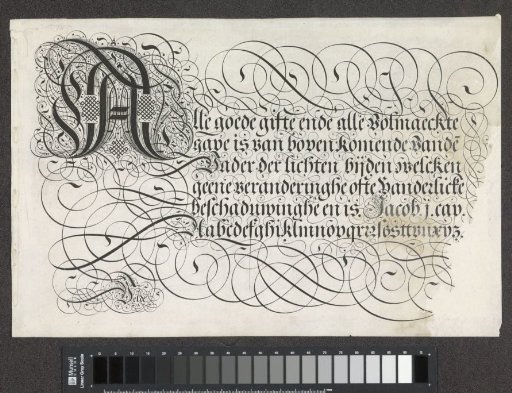 Alle goede gifte ende alle Volmaeckte
gave is van boven komende vandē
Vader der lichten, bijden welcken
geene veranderinghe ofte Vanderlicke
beschaduwinghe en is. Jacob j. cap.
Aabcdefghiklmnopqrsſsttvuxyz.